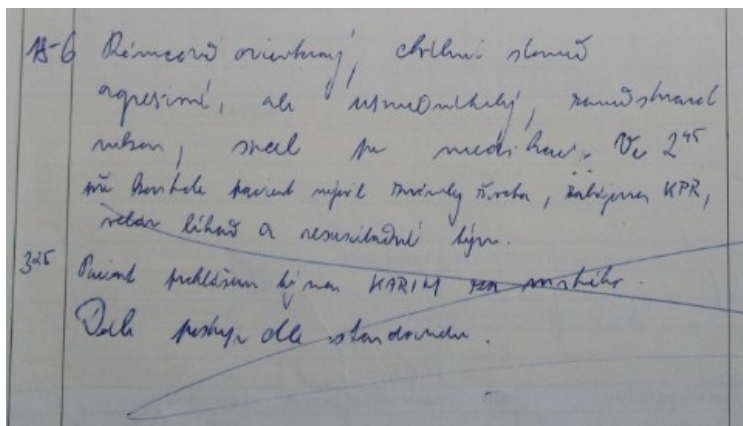 18-6 Rámcově orientovaný, chvílemi slovně
agresivní, ale usměrnitelný, zaměstnával
rukou, spal po medikaci. Ve 2⁴⁵
při kontrole pacient nejevil známky života, zahájena KPR,
volán lékař a resuscitační tým.
3²⁵ Pacient prohlášen týmem KARIM za mrtvého.
Dále postup dle standardu.